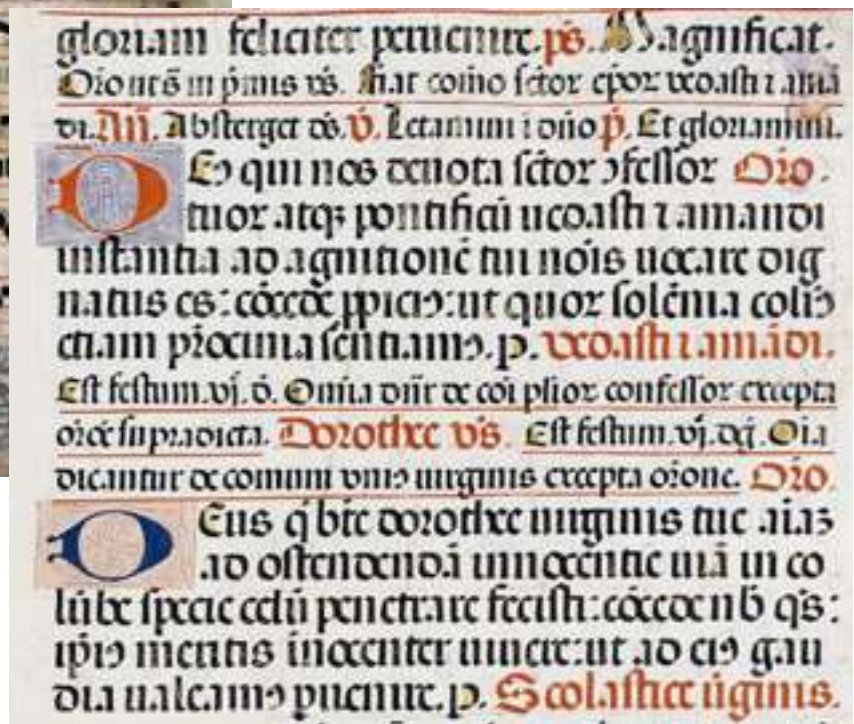 gloriam feliciter peruenire. ps. Magnificat.
Oro ut s̄ in p̄mis vs. fiat com̄o sctor ep̄or vedasti ⁊ amā
di. An̄. Absterget ds. V̄. Letamini i dn̄o p̄. Et gloriamini.
Eꝯ qui nos deuota sctōr ꝯfessor Oro.
tuor atqꝫ pontificū uedasti ⁊ amandi
instantia ad agnitionē tui nōis uocare dig
natus es: cōcede ppiciꝯ: ut quor solēnia colim
etiam p̄ocinia sentiamꝯ. p. vedasti ⁊ amādi.
Est festum .vj. d̄. Om̄ia dn̄r de cōi plior confessor excepta
orōe supradicta. Dorothee vīs. Est festum .vj. dꝗ. Oīa
dicantur de comuni vniꝯ uirginis excepta orōne. Oro
Eus q̄ bte dorothee uirginis tue aīaꝫ
ad ostendendā innocentie uiā in co
lūbe specie celū penetrare fecisti: cōcede nb̄ q̄s:
ipiꝯ meritis inocenter uiuere: ut ad eiꝯ gau
dia ualeamꝯ puenire. p. Scolastice ūginis.